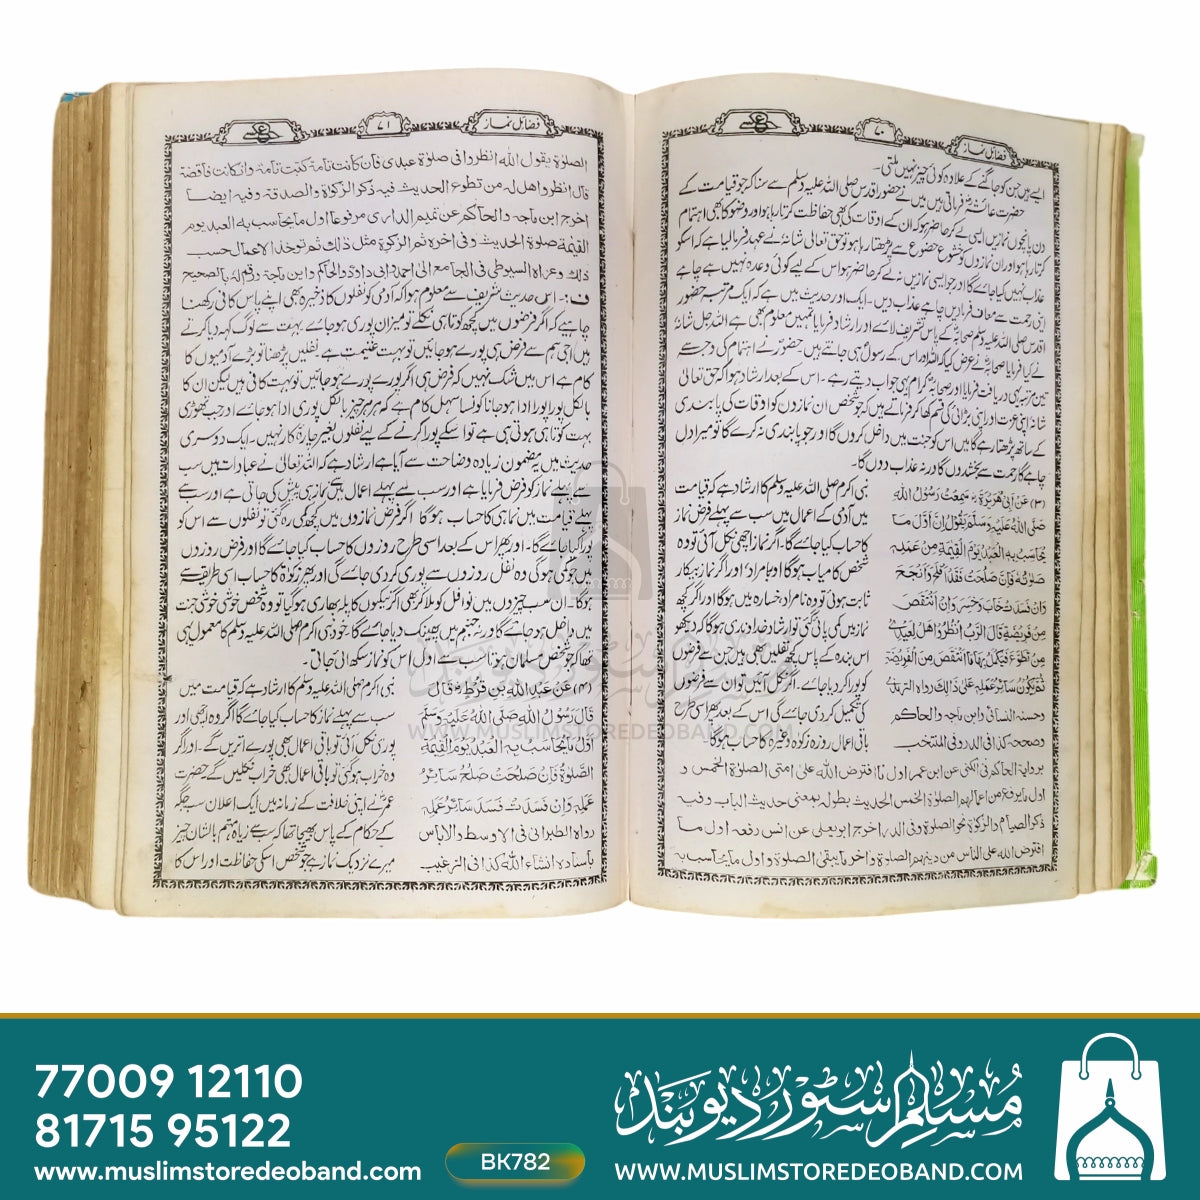 فضائل نماز
۷۰
ایسے ہیں جن کو جاگنے کے علاوہ کوئی چیز نہیں ملتی۔
حضرت عائشہؓ فرماتی ہیں میں نے حضور اقدس صلی اللہ علیہ وسلم سے سنا کہ جو قیامت کے
دن پانچوں نمازیں ایسی لے کر حاضر ہو کہ ان کے اوقات کی بھی حفاظت کرتا رہا ہو اور وضو کا بھی اہتمام
کرتا رہا ہو اور ان نمازوں کو خشوع خضوع سے پڑھتا رہا ہو تو حق تعالیٰ شانہٗ نے عہد فرما لیا ہے کہ اسکو
عذاب نہیں کیا جائے گا اور جو ایسی نمازیں نہ لے کر حاضر ہو اس کے لیے کوئی وعدہ نہیں ہے چاہے
اپنی رحمت سے معاف فرمادیں چاہے عذاب دیں۔ ایک اور حدیث میں ہے کہ ایک مرتبہ حضور
اقدس صلی اللہ علیہ وسلم صحابہؓ کے پاس تشریف لائے اور ارشاد فرمایا تمہیں معلوم بھی ہے اللہ جل شانہٗ
نے کیا فرمایا صحابہؓ نے عرض کیا کہ اللہ اور اس کے رسول ہی جانتے ہیں۔ حضورؐ نے اہتمام کی وجہ سے
تین مرتبہ یہی دریافت فرمایا اور صحابہ کرام یہی جواب دیتے رہے۔ اس کے بعد ارشاد ہوا کہ حق تعالیٰ
شانہ اپنی عزت اور اپنی بڑائی کی قسم کھا کر فرماتے ہیں کہ جو شخص ان نمازوں کو اوقات کی پابندی
کے ساتھ پڑھتا رہے گا میں اس کو جنت میں داخل کروں گا اور جو پابندی نہ کرے گا تو میرا دل
چاہے گا رحمت سے بخشدوں گا ورنہ عذاب دوں گا۔
(۳) عَنْ اَبِیْ هُرَيْرَةَ رض سَمِعْتُ رَسُوْلَ اللهِ
صَلَّى اللهُ عَلَيْهِ وَسَلَّمَ يَقُوْلُ اِنَّ اَوَّلَ مَا
يُحَاسَبُ بِهِ الْعَبْدُ يَوْمَ الْقِيٰمَةِ مِنْ عَمَلِهٖ
صَلٰوتُهٗ فَاِنْ صَلُحَتْ فَقَدْ اَفْلَحَ وَاَنْجَحَ
وَاِنْ فَسَدَتْ خَابَ وَخَسِرَ وَاِنِ انْتَقَصَ
مِنْ فَرِيْضَةٍ قَالَ الرَّبُّ انْظُرُوْا هَلْ لِعَبْدِیْ
مِنْ تَطَوُّعٍ فَيُكَمَّلُ بِهَا مَا انْتَقَصَ مِنَ الْفَرِيْضَةِ
ثُمَّ يَكُوْنُ سَائِرُ عَمَلِهٖ عَلٰى ذٰلِكَ رواه الترمذی
وحسنه النسائی وابن ماجه والحاكم
وصححه كذا فی الدر وفی المنتخب
نبی اکرم صلی اللہ علیہ وسلم کا ارشاد ہے کہ قیامت
میں آدمی کے اعمال میں سب سے پہلے فرض نماز
کا حساب کیا جائے گا۔ اگر نماز اچھی نکل آئی تو وہ
شخص کامیاب ہوگا اور بامراد، اور اگر نماز بیکار
ثابت ہوئی تو وہ نامراد خسارہ میں ہوگا اور اگر کچھ
نماز میں کمی پائی گئی تو ارشاد خداوندی ہوگا کہ دیکھو
اس بندہ کے پاس کچھ نفلیں بھی ہیں جن سے فرضوں
کو پورا کر دیا جائے۔ اگر نکل آئیں تو ان سے فرضوں
کی تکمیل کر دی جائے گی اس کے بعد پھر اسی طرح
باقی اعمال روزہ زکوٰۃ وغیرہ کا حساب ہوگا۔
برواية الحاكم فی الكنى عن ابن عمر اول ما افترض الله على امتى الصلوة الخمس و
اول ما يرفع من اعمالهم الصلوة الخمس الحديث بطوله بمعنى حديث الباب وفيه
ذكر الصيام والزكوة نحو الصلوة وفی الدر اخرج ابو يعلى عن انس رفعه اول ما
افترض الله على الناس من دينهم الصلوة واخر ما يبقى الصلوة واول ما يحاسب به
فضائل نماز
۷۱
الصلوة يقول الله انظروا فی صلوة عبدی فان كانت تامة كتبت تامة وان كانت ناقصة
قال انظروا هل له من تطوع الحديث فيه ذكر الزكوة والصدقة وفيه ايضا
اخرج ابن ماجه والحاكم عن تميم الداری مرفوعا اول ما يحاسب به العبد يوم
القيمة صلوة الحديث وفی اخره ثم الزكوة مثل ذلك ثم توخذ الاعمال حسب
ذلك وعزاه السيوطی فی الجامع الى احمد وابی داود والحاكم وابن ماجة ورقم له بالصحيح
ف :۔ اس حدیث شریف سے معلوم ہوا کہ آدمی کو نفلوں کا ذخیرہ بھی اپنے پاس کافی رکھنا
چاہیے کہ اگر فرضوں میں کچھ کوتاہی نکلے تو میزان پوری ہو جائے بہت سے لوگ کہہ دیا کرتے
ہیں اجی ہم سے فرض ہی پورے ہو جائیں تو بہت غنیمت ہے نفلیں پڑھنا تو بڑے آدمیوں کا
کام ہے اس میں شک نہیں کہ فرض ہی اگر پورے پورے ہو جائیں تو بہت کافی ہیں لیکن ان کا
بالکل پورا پورا ادا ہو جانا کونسا سہل کام ہے کہ ہر ہر چیز بالکل پوری ادا ہو جائے اور جب تھوڑی
بہت کوتاہی ہوتی ہی ہے تو اسکے پورا کرنے کے لیے نفلوں بغیر چارۂ کار نہیں۔ ایک دوسری
حدیث میں یہ مضمون زیادہ وضاحت سے آیا ہے ارشاد ہے کہ اللہ تعالیٰ نے عبادات میں سب
سے پہلے نماز کو فرض فرمایا ہے اور سب سے پہلے اعمال میں سے نماز ہی پیش کی جاتی ہے اور سب سے
پہلے قیامت میں نماز ہی کا حساب ہوگا اگر فرض نمازوں میں کچھ کمی رہ گئی تو نفلوں سے اس کو
پورا کیا جائے گا۔ اور پھر اس کے بعد اسی طرح روزوں کا حساب کیا جائے گا اور فرض روزوں
میں جو کمی ہوگی وہ نفل روزوں سے پوری کر دی جائے گی اور پھر زکوٰۃ کا حساب اسی طریقے سے
ہوگا۔ ان سب چیزوں میں نوافل کو ملا کر بھی اگر نیکیوں کا پلہ بھاری ہو گیا تو وہ شخص خوشی خوشی جنت
میں داخل ہو جائے گا ورنہ جہنم میں پھینک دیا جائے گا خود نبی اکرم صلی اللہ علیہ وسلم کا معمول یہی
تھا کہ جو شخص مسلمان ہوتا سب سے اول اس کو نماز سکھائی جاتی۔
(۴) عَنْ عَبْدِ اللهِ بْنِ قُرْطٍ رض قَالَ
قَالَ رَسُوْلُ اللهِ صَلَّى اللهُ عَلَيْهِ وَسَلَّمَ
اَوَّلُ مَا يُحَاسَبُ بِهِ الْعَبْدُ يَوْمَ الْقِيٰمَةِ
الصَّلٰوةُ فَاِنْ صَلُحَتْ صَلُحَ سَائِرُ
عَمَلِهٖ وَاِنْ فَسَدَتْ فَسَدَ سَائِرُ عَمَلِهٖ
رواه الطبرانی فی الاوسط ولا باس
باسناده انشاء الله كذا فی الترغيب
نبی اکرم صلی اللہ علیہ وسلم کا ارشاد ہے کہ قیامت میں
سب سے پہلے نماز کا حساب کیا جائے گا اگر وہ اچھی اور
پوری نکل آئی تو باقی اعمال بھی پورے اتریں گے۔ اور اگر
وہ خراب ہو گئی تو باقی اعمال بھی خراب نکلیں گے حضرت
عمرؓ نے اپنی خلافت کے زمانہ میں ایک اعلان سب جگہ
کے حکام کے پاس بھیجا تھا کہ سب سے زیادہ مہتم بالشان چیز
میرے نزدیک نماز ہے جو شخص اسکی حفاظت اور اس کا
WWW.MUSLIMSTOREDEOBAND.COM
77009 12110
81715 95122
www.muslimstoredeoband.com
BK782
مسلم سٹور دیوبند
WWW.MUSLIMSTOREDEOBAND.COM